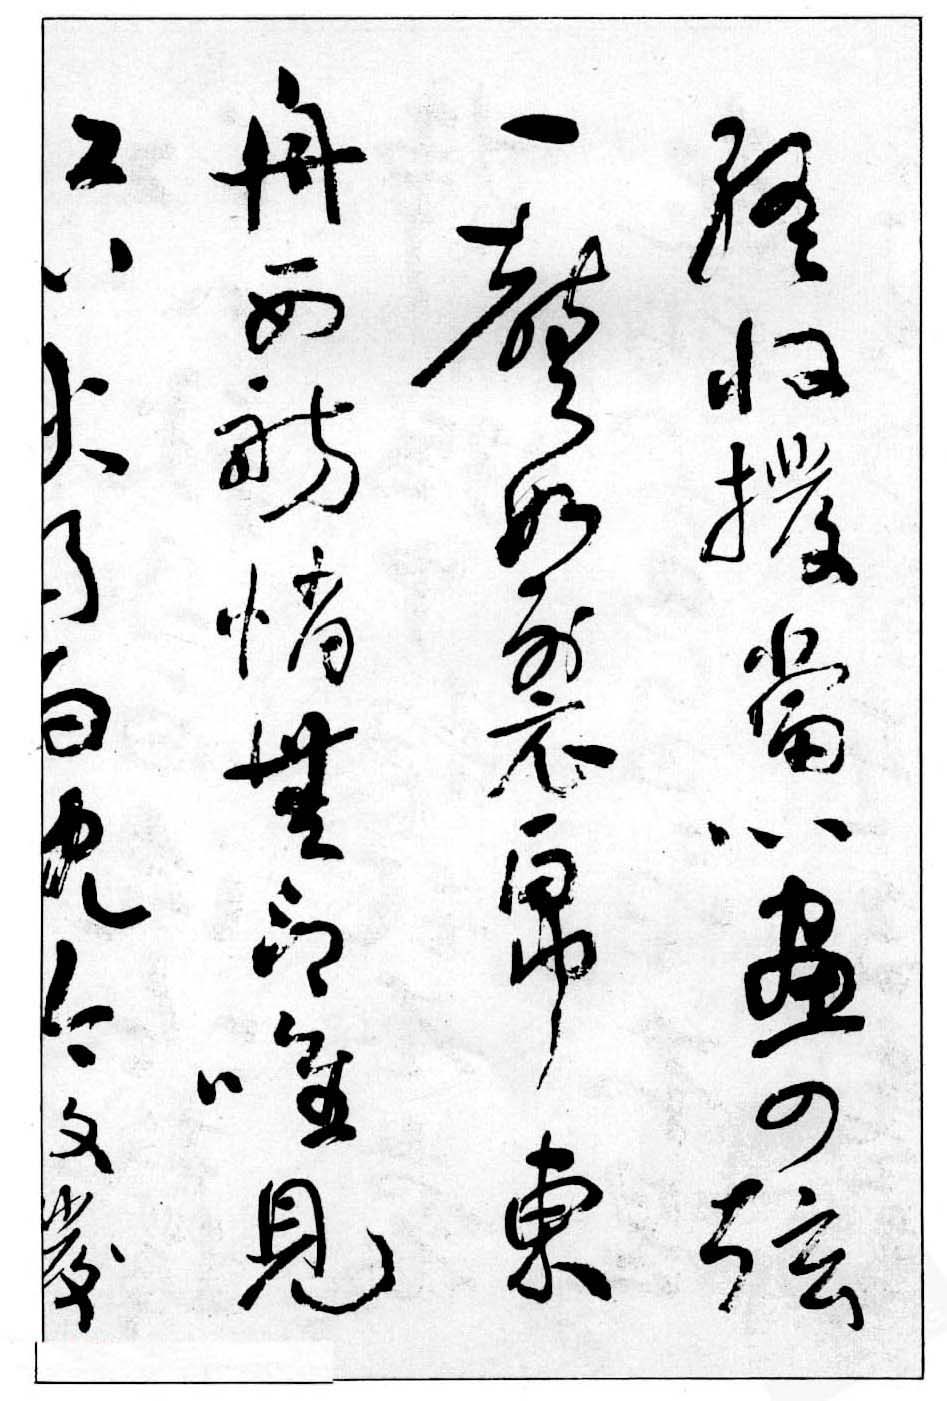 終收撥當心畫四弦
一聲如裂帛東
舟西舫悄無言唯見
江心秋月白沈吟放撥